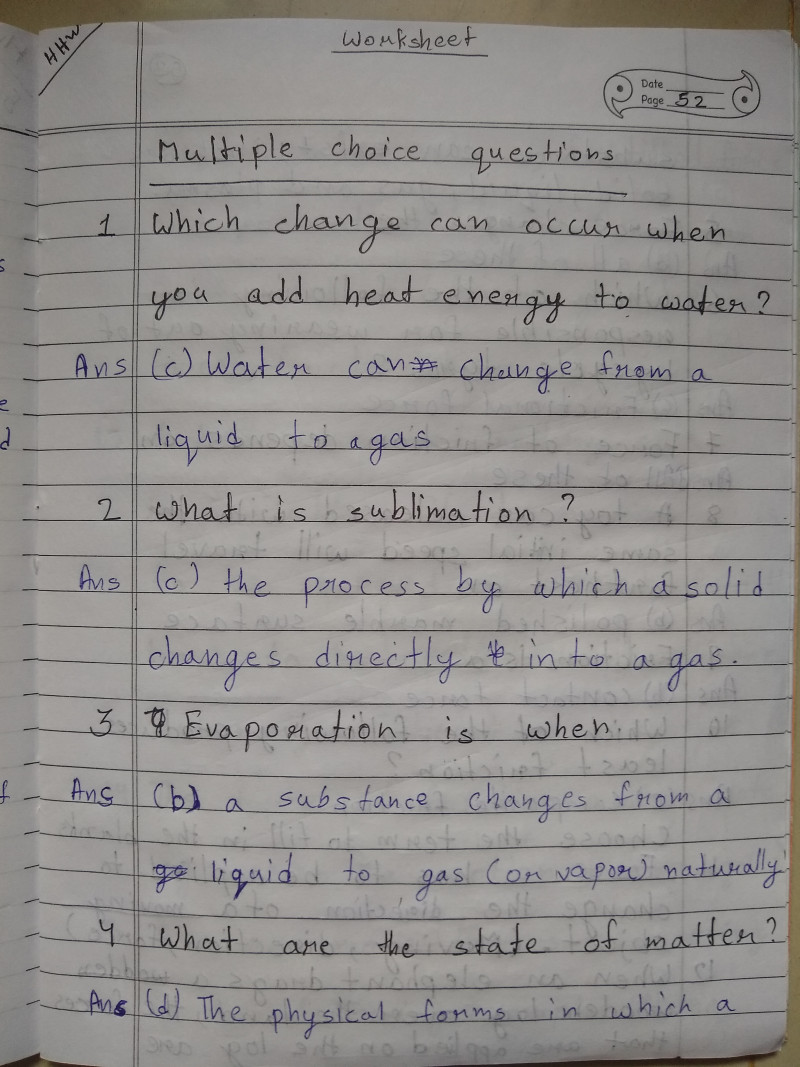 HHW
Worksheet
Date
Page 52
Multiple choice questions
1 Which change can occur when
you add heat energy to water?
Ans (c) Water can change from a
liquid to a gas
2 what is sublimation ?
Ans (c) the process by which a solid
changes directly in to a gas.
3 Evaporation is when
Ans (b) a substance changes from a
liquid to gas (or vapor) naturally
4 What are the state of matter?
Ans (d) The physical forms in which a